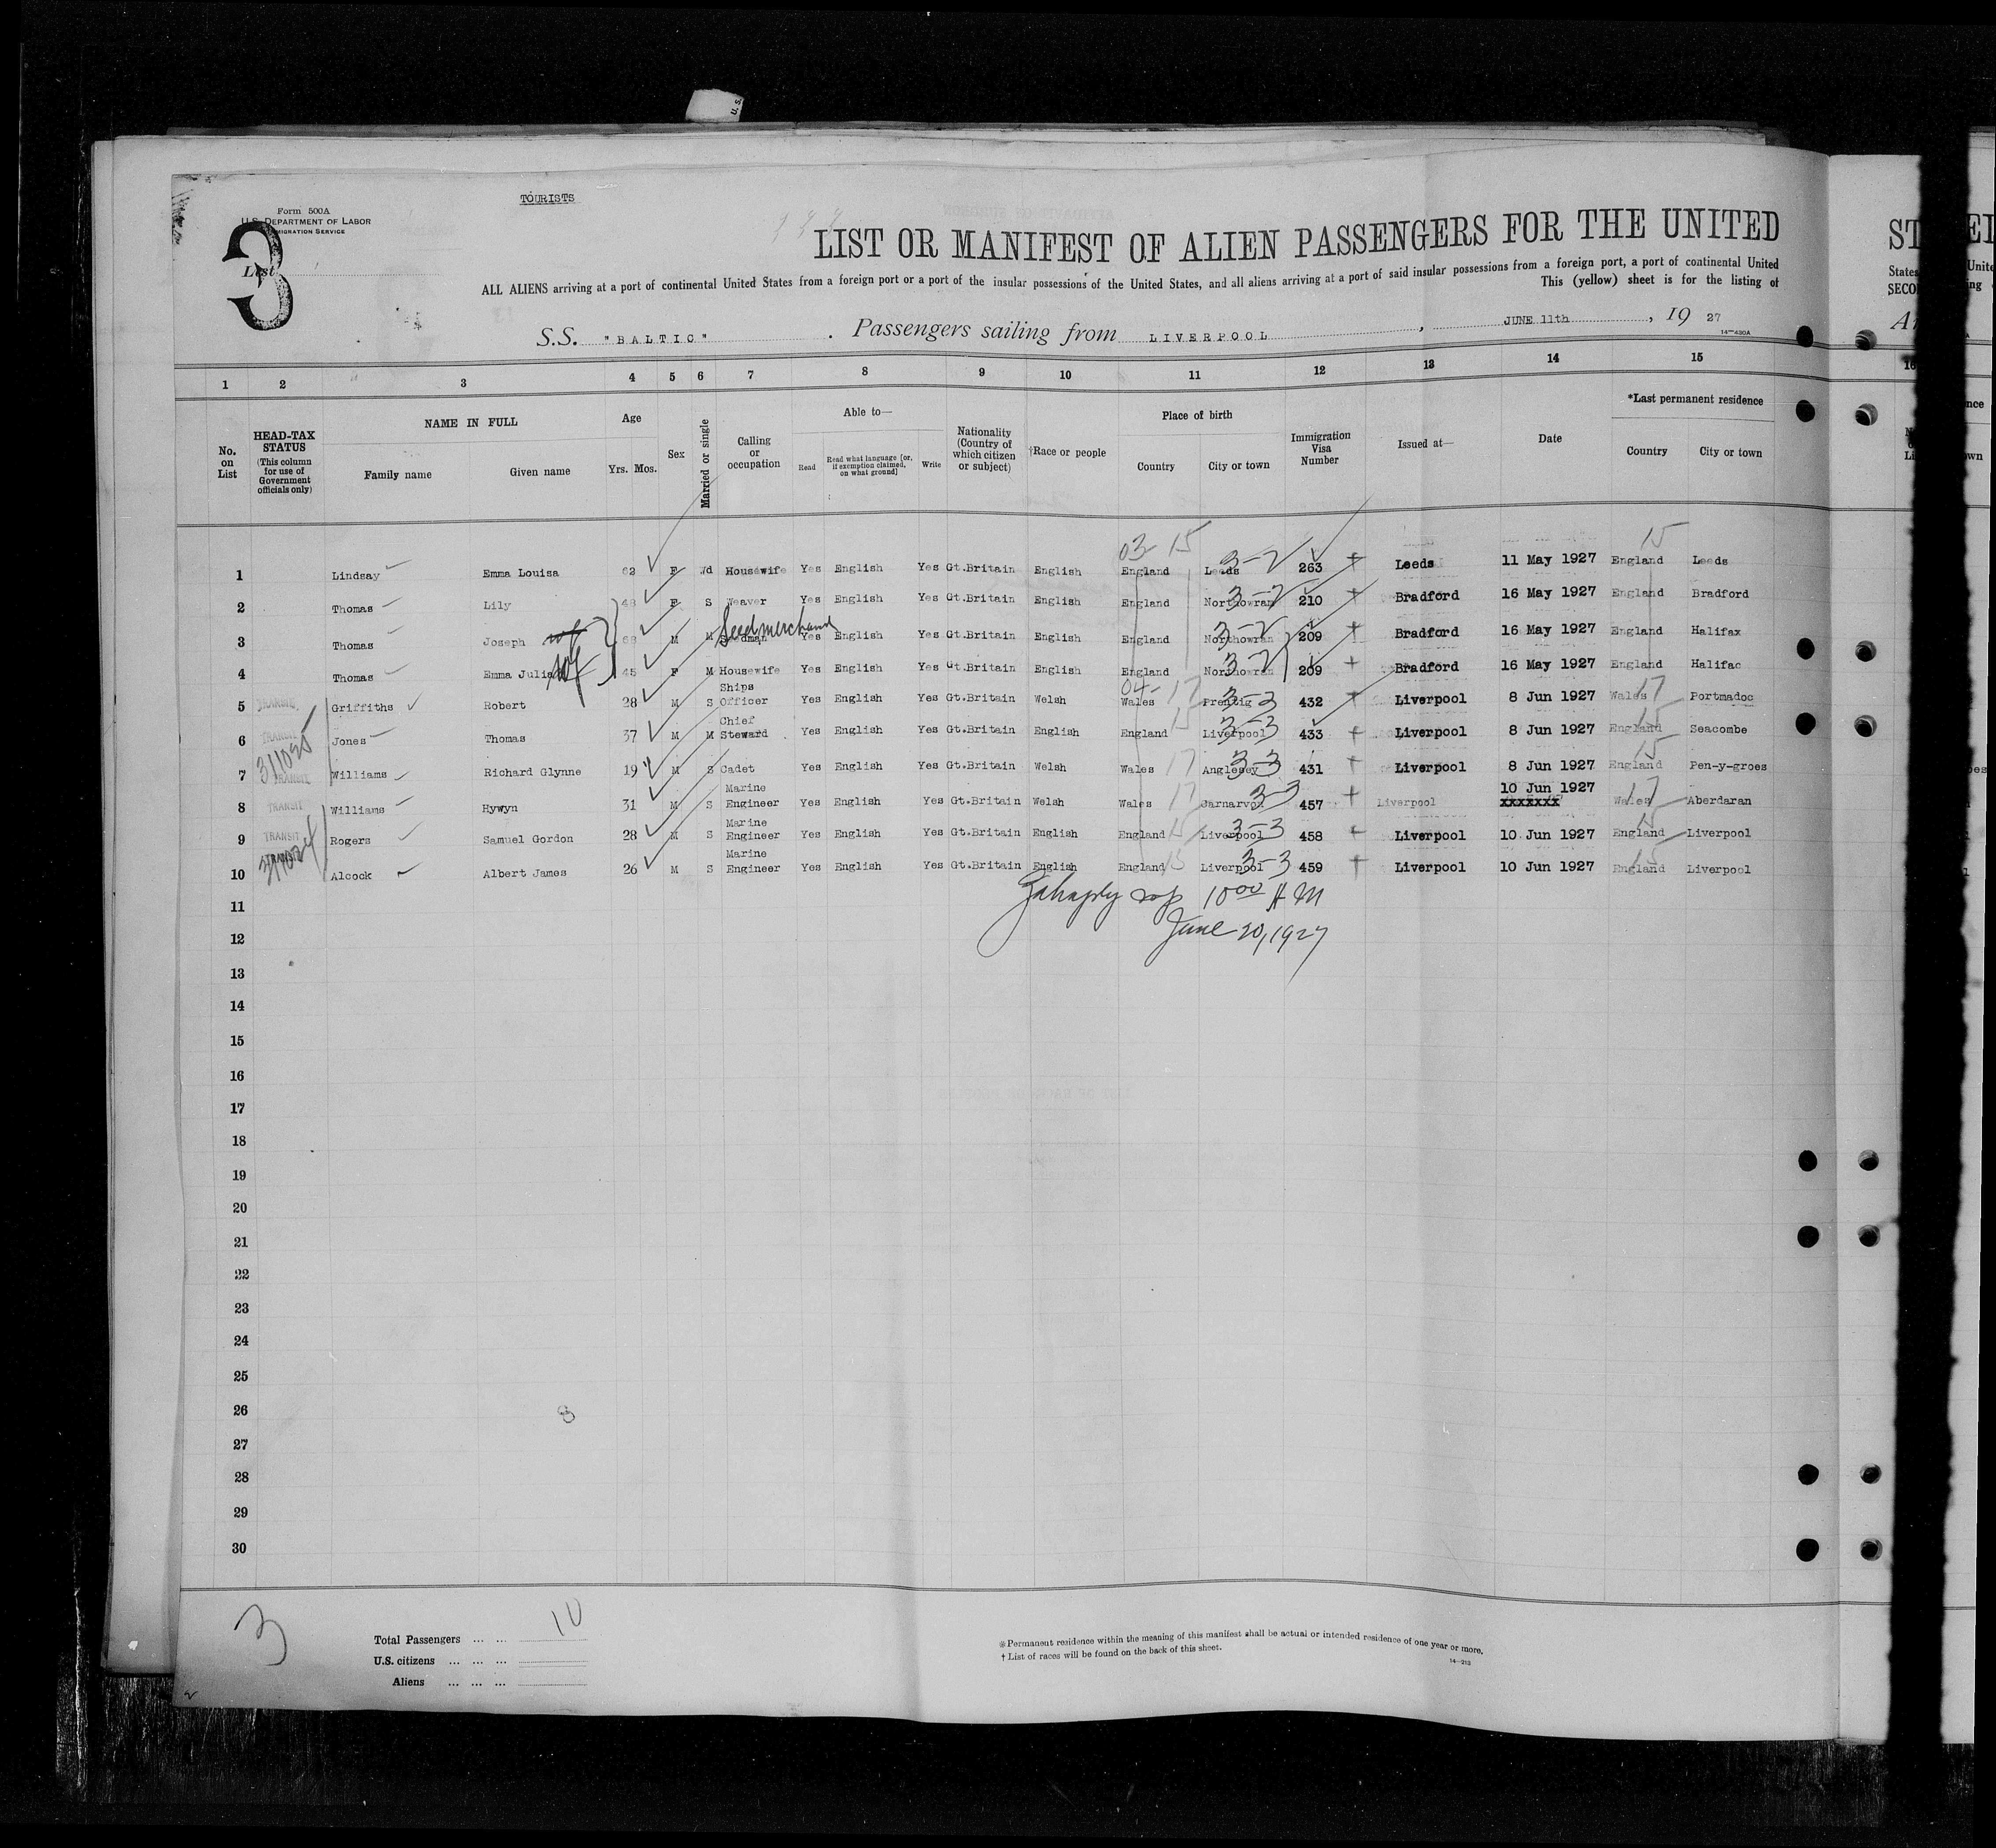 U.S.
TOURISTS
Form 500A
U.S. DEPARTMENT OF LABOR
IMMIGRATION SERVICE
List
3
LIST OR MANIFEST OF ALIEN PASSENGERS FOR THE UNITED
ALL ALIENS arriving at a port of continental United States from a foreign port or a port of the insular possessions of the United States, and all aliens arriving at a port of said insular possessions from a foreign port, a port of continental United
This (yellow) sheet is for the listing of
S.S. "BALTIC" . Passengers sailing from LIVERPOOL , JUNE 11th , 19 27
14-430A
1 2 3 4 5 6 7 8 9 10 11 12 13 14 15
No. on List
HEAD-TAX STATUS (This column for use of Government officials only)
NAME IN FULL
Family name Given name
Age
Yrs. Mos.
Sex
Married or single
Calling or occupation
Able to—
Read
Read what language [or, if exemption claimed, on what ground]
Write
Nationality (Country of which citizen or subject)
†Race or people
Place of birth
Country City or town
Immigration Visa Number
Issued at—
Date
*Last permanent residence
Country City or town
03 15 15
1 Lindsay Emma Louisa 62 F Wd Housewife Yes English Yes Gt.Britain English England Leeds 3-2 263 Leeds 11 May 1927 England Leeds
2 Thomas Lily 48 F S Weaver Yes English Yes Gt.Britain English England Northowram 3-2 210 Bradford 16 May 1927 England Bradford
Seedmerchand
3 Thomas Joseph 68 M M Seedman Yes English Yes Gt.Britain English England Northowram 3-2 209 Bradford 16 May 1927 England Halifax
4 Thomas Emma Julia wf 45 F M Housewife Yes English Yes Gt.Britain English England Northowram 3-2 209 Bradford 16 May 1927 England Halifac
5 TRANSIT Griffiths Robert 28 M S Ships Officer Yes English Yes Gt.Britain Welsh 04-17 Wales Prentig 3-3 432 Liverpool 8 Jun 1927 Wales 17 Portmadoc
6 TRANSIT Jones Thomas 37 M M Chief Steward Yes English Yes Gt.Britain English England 15 Liverpool 3-3 433 Liverpool 8 Jun 1927 England 15 Seacombe
311025
7 TRANSIT Williams Richard Glynne 19 M S Cadet Yes English Yes Gt.Britain Welsh Wales 17 Anglesey 3-3 431 Liverpool 8 Jun 1927 England 15 Pen-y-groes
8 TRANSIT Williams Hywyn 31 M S Marine Engineer Yes English Yes Gt.Britain Welsh Wales 17 Carnarvon 3-3 457 Liverpool 10 Jun 1927 xxxxxxx Wales 17 Aberdaran
9 TRANSIT Rogers Samuel Gordon 28 M S Marine Engineer Yes English Yes Gt.Britain English England 15 Liverpool 3-3 458 Liverpool 10 Jun 1927 England 15 Liverpool
10 Alcock Albert James 26 M S Marine Engineer Yes English Yes Gt.Britain English England 15 Liverpool 3-3 459 Liverpool 10 Jun 1927 England 15 Liverpool
10 00 AM
June 20, 1927
11
12
13
14
15
16
17
18
19
20
21
22
23
24
25
26
27
28
29
30
3
Total Passengers ... ... 10
U.S. citizens ... ... ...
Aliens ... ... ...
*Permanent residence within the meaning of this manifest shall be actual or intended residence of one year or more.
† List of races will be found on the back of this sheet.
14-212